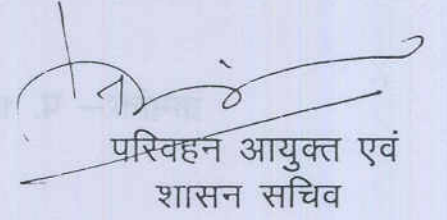 परिवहन आयुक्त एवं
शासन सचिव